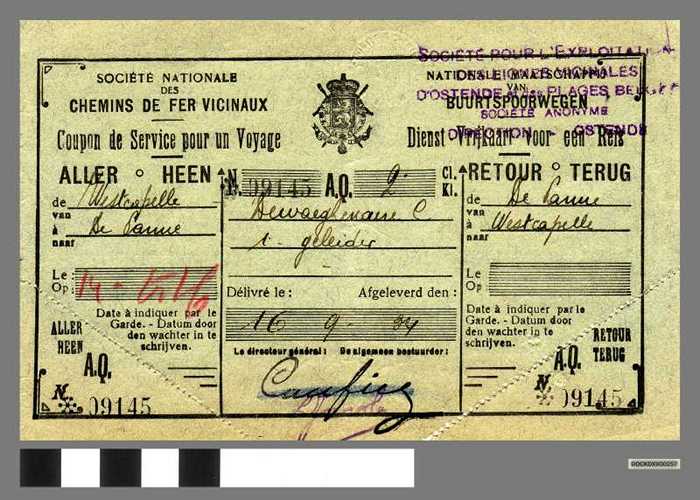 SOCIÉTÉ POUR L'EXPLOITATION
DES LIGNES VICINALES
D'OSTENDE PLAGES BELGES
SOCIÉTÉ ANONYME
DIRECTION - OSTENDE
SOCIÉTÉ NATIONALE
DES
CHEMINS DE FER VICINAUX
Coupon de Service pour un Voyage
NATIONALE MAATSCHAPPIJ
VAN
BUURTSPOORWEGEN
Dienst-Vrijkaart voor een Reis
ALLER ○ HEEN
de Westcapelle
van
à De Panne
naar
Le :
Op :
Date à indiquer par le
Garde. - Datum door
den wachter in te
schrijven.
ALLER
HEEN
A.Q.
N. 09145
N. 09145 A.Q. 2 Cl.
Kl.
C
1 - geleider
Délivré le : Afgeleverd den :
16 - 9 - 34
Le directeur général : De algemeen bestuurder :
RETOUR ○ TERUG
de De Panne
van
à Westcapelle
naar
Le :
Op :
Date à indiquer par le
Garde. - Datum door
den wachter in te
schrijven.
RETOUR
TERUG
A.Q.
N. 09145